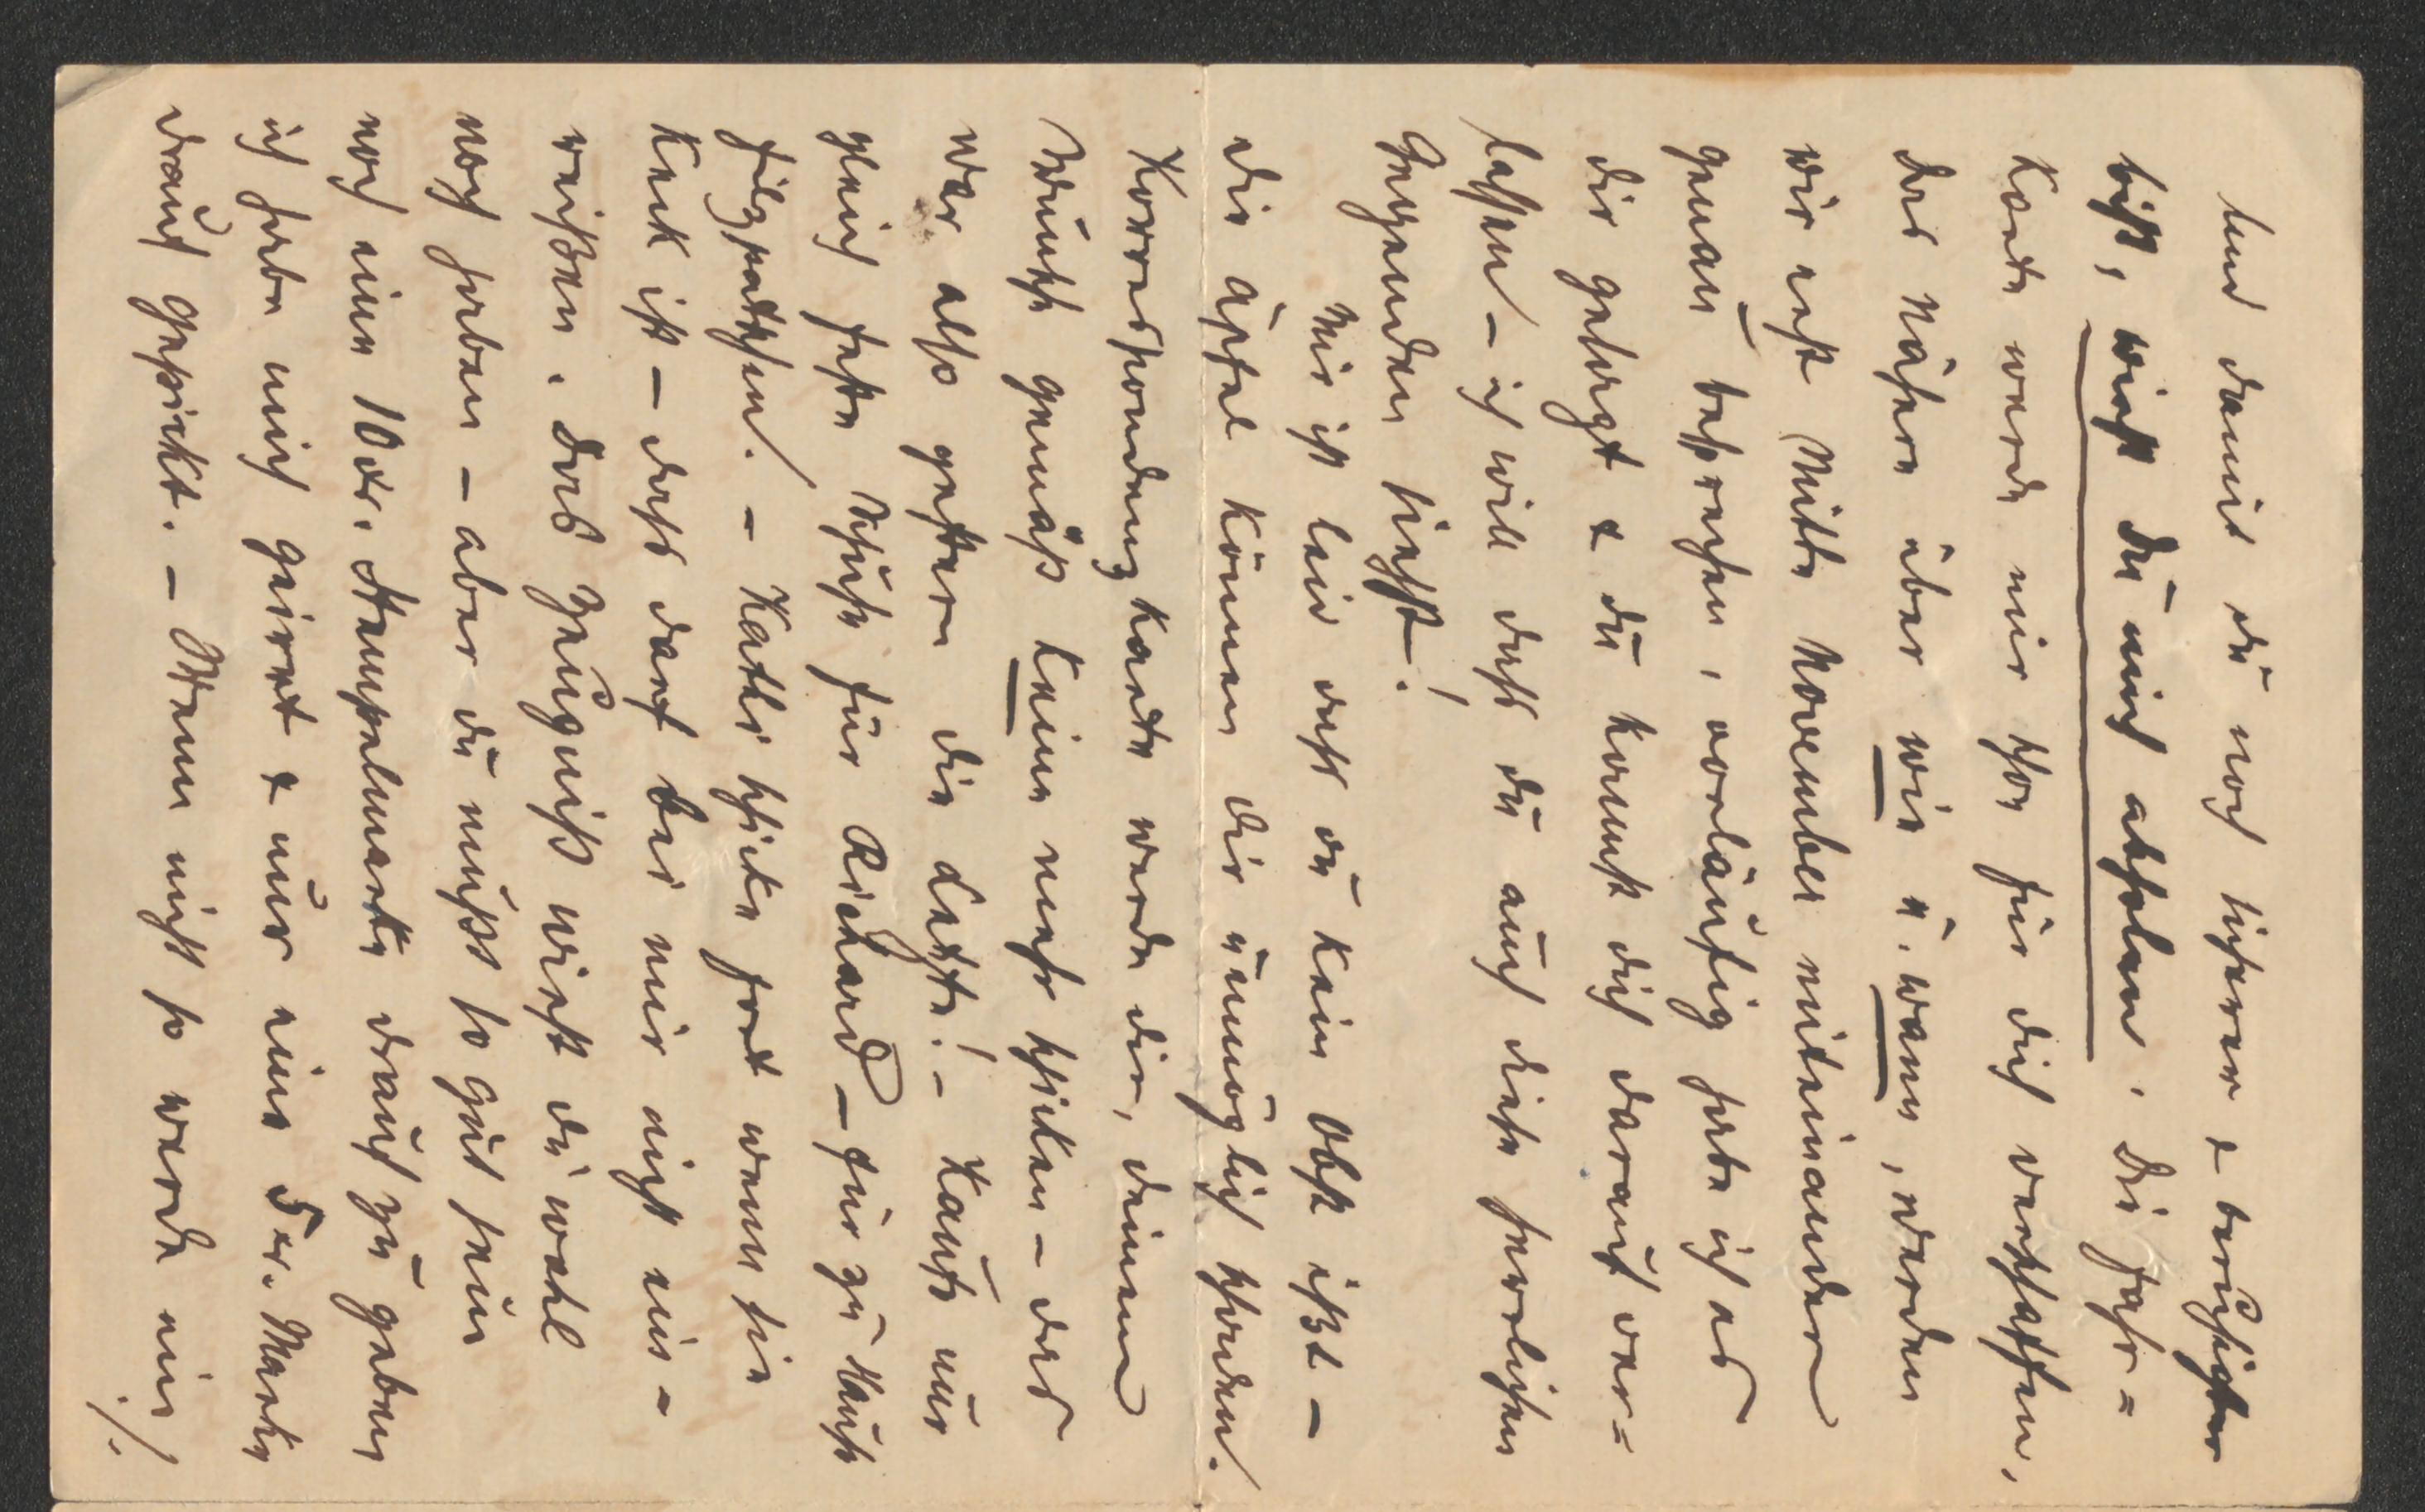 Und damit du noch sicherer & beruhigter
bist, wirst du mich abholen. Die Fahr=
karte werde mir schon für dich verschaffen,
das Nähere über wie u. wann, werden
wir erst Mitte November miteinander
genau besprechen, vorläufig habe ich es
dir gesagt & du kannst dich darauf ver=
lassen – ich will dass du auch diese herrlichen
Gegenden siehst!
Mir ist leid dass du kein Obst isst –
die Äpfel können dir unmöglich schaden.
Korrespondenzkarte werde dir, deinem
Wunsch gemäß keine mehr schicken – das
war also gestern die letzte! – Kaufe nur
gleich feste Schuhe für Richard – für zu Hause
Filzpatschen. – Kathi schicke fort wenn sie
keck ist – das darf bei mir nicht ein=
reißen. Das Zeugniß wirst du wohl
noch haben – aber du musst so gut sein
noch eine 10 kr. Stempelmarke drauf zu geben
ich habe mich geirrt & nur eine 5 kr. Marke
drauf gepickt. – Wenn nicht so werde mir ./.